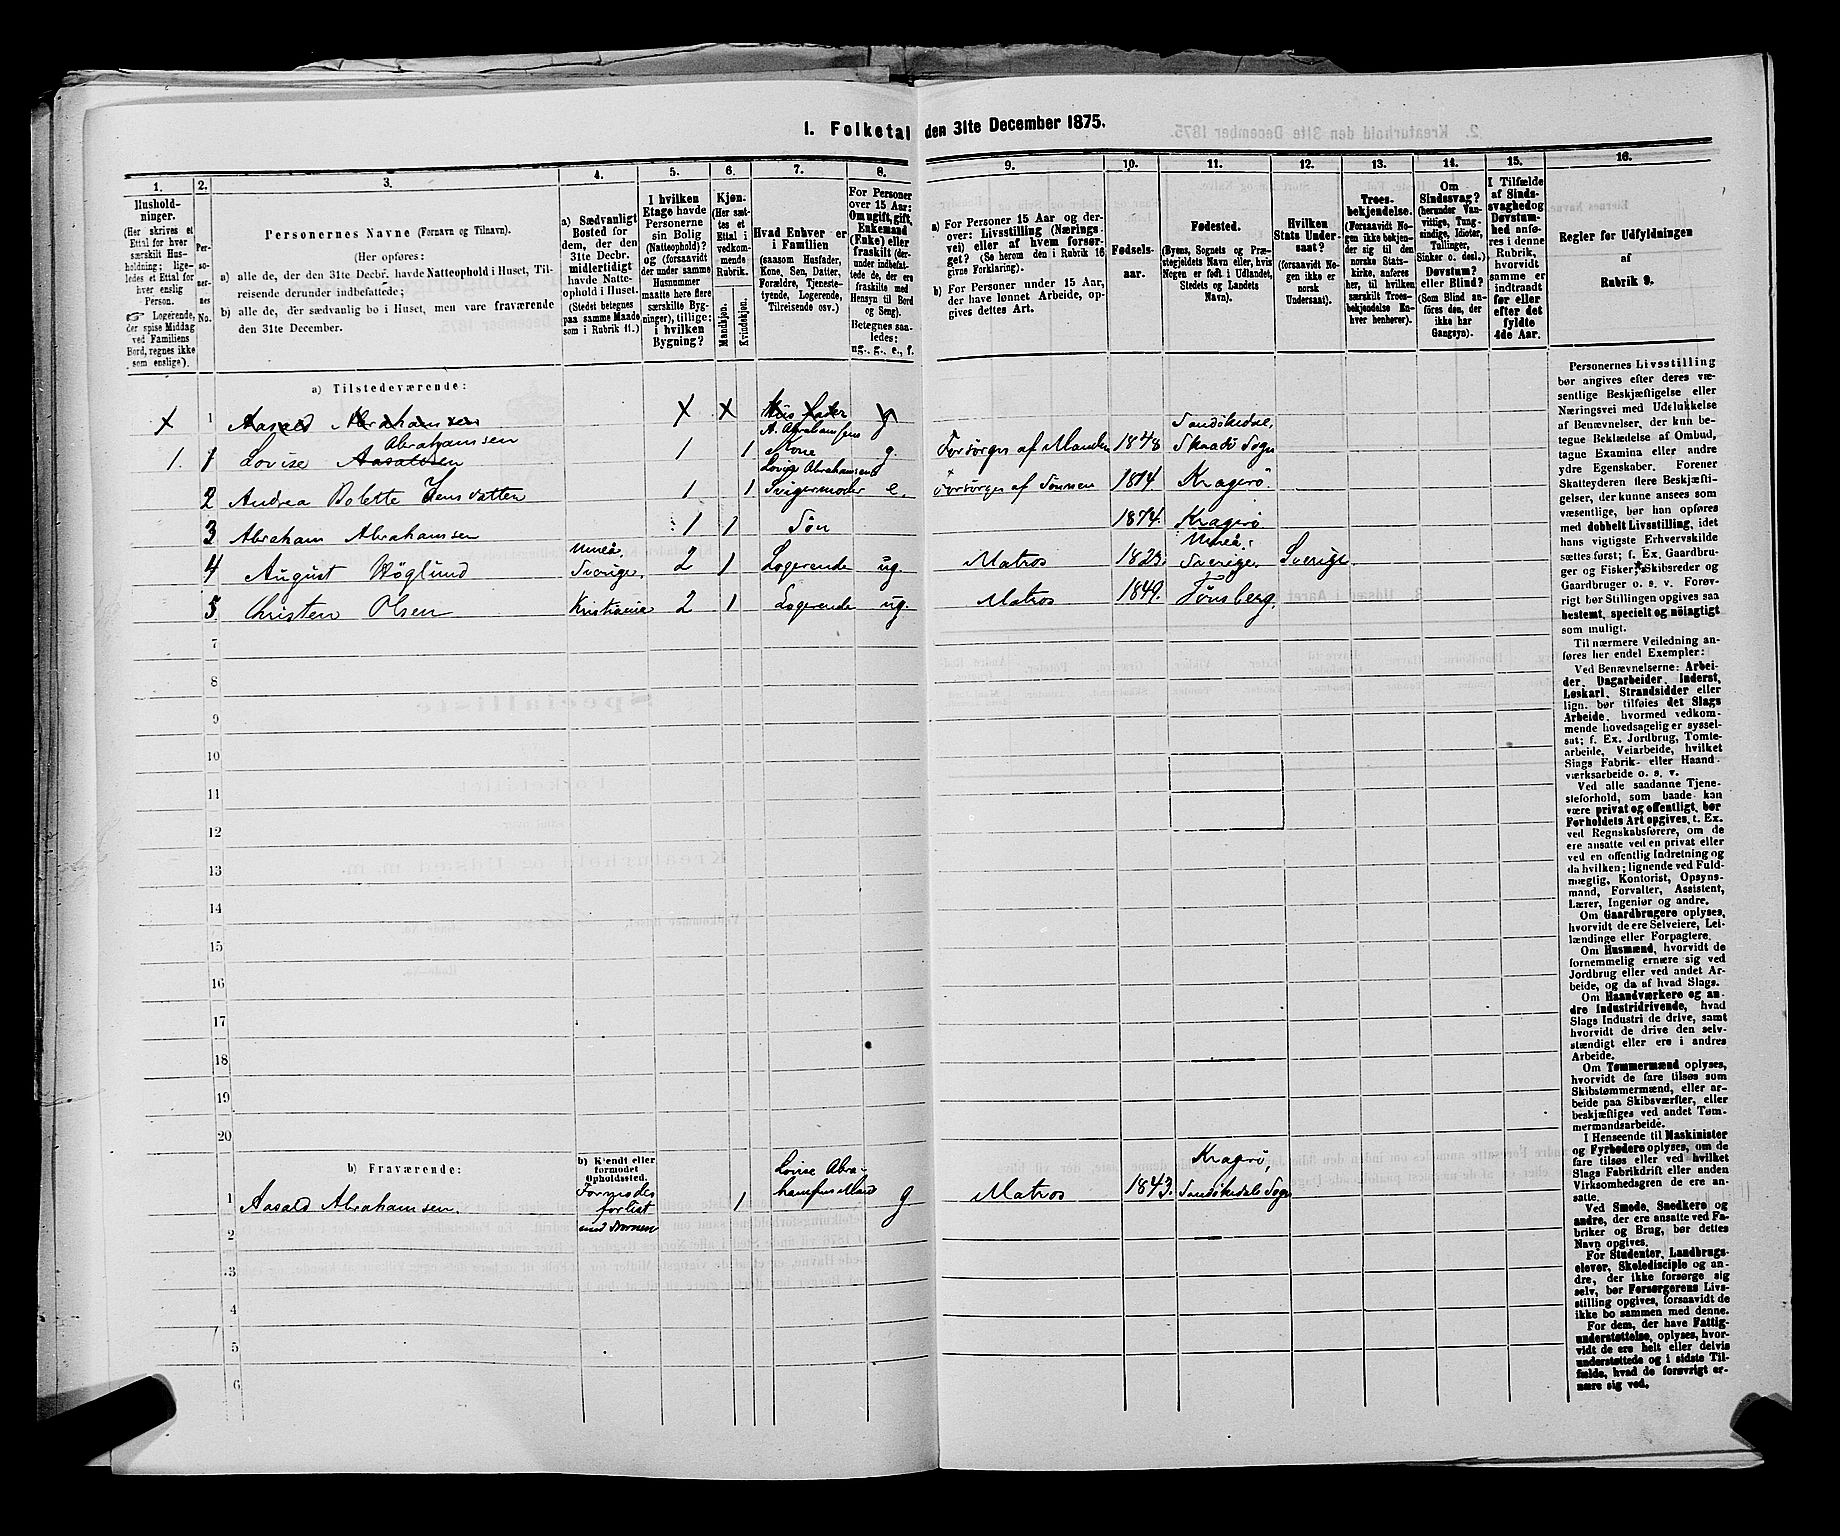 I. Folketal den 31te December 1875.
1. 2. 3. 4. 5. 6. 7. 8. 9. 10. 11. 12. 13. 14. 15. 16.
Husholdninger.
(Her skrives et
Ettal for hver
særskilt Hus-
holdning; lige-
ledes et Ettal for
hver enslig
Person.
☞ Logerende,
der spise Middag
ved Familiens
Bord, regnes ikke
som enslige).
Per-
so-
ner-
nes
No.
Personernes Navne (Fornavn og Tilnavn).
(Her opføres:
a) alle de, der den 31te Decbr. havde Natteophold i Huset, Til-
reisende derunder indbefattede;
b) alle de, der sædvanlig bo i Huset, men vare fraværende
den 31te December.
a) Sædvanligt
Bosted for
dem, der den
31te Decbr.
midlertidigt
havde Natte-
ophold i Huset.
(Stedet betegnes
paa samme Maade
som i Rubrik 11.)
I hvilken
Etage havde
Personerne
sin Bolig
(Natteophold)?
og (forsaavidt
der under samme
Husnummer
maatte høre flere
særskilte Byg-
ninger), tillige:
i hvilken
Bygning?
Kjøn.
(Her sæt-
tes et
Ettal i
vedkom-
mende
Rubrik.
Mandkjøn.
Kvindekjøn.
Hvad Enhver er
i Familien
(saasom Husfader,
Kone, Søn, Datter,
Forældre, Tjeneste-
tyende, Logerende,
Tilreisende osv.)
For Personer
over 15 Aar:
Om ugift, gift,
Enkemand
(Enke) eller
fraskilt (der-
under indbefat-
tede de, der ere
fraskilte med
Hensyn til Bord
og Seng).
Betegnes saa-
ledes:
ug., g., e., f.
a) For Personer 15 Aar og der-
over: Livsstilling (Nærings-
vei) eller af hvem forsør-
get? (Se herom den i Rubrik 16
givne Forklaring).
b) For Personer under 15 Aar,
der have lønnet Arbeide, op-
gives dettes Art.
Fødsels-
aar.
Fødested.
(Byens, Sognets og Præ-
stegjeldets Navn eller, hvis
Nogen er født i Udlandet,
Stedets og Landets
Navn).
Hvilken
Stats Under-
saat?
(forsaavidt No-
gen ikke er
norsk
Undersaat).
Troes-
bekjendelse.
(Forsaavidt No-
gen ikke bekjen-
der sig til den
norske Stats-
kirke, anføres
her, til hvilken
særskilt Troes-
bekjendelse En-
hver henhører).
Om
Sindssvag?
(herunder Van-
vittige, Tung-
sindige, Idioter,
Tullinger,
Sinker o. desl.)
Døvstum?
eller Blind?
(Som Blind an-
føres den, der
ikke har
Gangsyn).
I Tilfælde
af Sinds-
svaghed og
Døvstum-
hed anfø-
res i denne
Rubrik,
hvorvidt
samme er
indtraadt
før eller
efter det
fyldte
4de Aar.
Regler for Udfyldningen
af
Rubrik 9.
a) Tilstedeværende:
X 1 Aasald Abrahamsen X X Hus fader g
1. 1 Lovise Aasaldsen Abrahamsen 1 1 A. Abrahamsens Kone g. Forsörges af Manden 1848 Sandökedal, Skaadö Sogn
2 Andrea Bolette Jensdatten 1 1 Lovise Abrahamsens Svigermoder e. Forsörges af Sönnen 1814. Kragerö.
3 Abraham Abrahamsen 1 1 Sön 1874. Kragerö
4 August Höglund Umeå, Sverige. 2 1 Logerende ug. Matros 1823. Umeå, Sverige. Sverige.
5. Christen Olsen Kristiania 2 1 Logerende ug. Matros 1849. Tönsberg.
7
8
9
10
11
12
13
14
15
16
17
18
19
20
b) Fraværende:
b) Kjendt eller
formodet
Opholdssted.
1 Aasald Abrahamsen. Formodes forlist med Barnen 1 Lovise Abra-hamsens Mand g Matros 1843. Kragerö, Sandökedals Sogn
2
3
4
5
6
Personernes Livsstilling
bør angives efter deres væ-
sentlige Beskjæftigelse eller
Næringsvei med Udelukkelse
af Benævnelser, der kun be-
tegne Beklædelse af Ombud,
tagne Examina eller andre
ydre Egenskaber. Forener
Skatteyderen flere Beskjæfti-
gelser, der kunne ansees som
væsentlige, bør han opføres
med dobbelt Livsstilling, idet
hans vigtigste Erhvervskilde
sættes først; f. Ex. Gaardbru-
ger og Fisker; Skibsreder og
Gaardbruger o. s. v. Forøv-
rigt bør Stillingen opgives saa
bestemt, specielt og nöiagtigt
som muligt.
Til nærmere Veiledning an-
føres her endel Exempler:
Ved Benævnelserne: Arbei-
der, Dagarbeider, Inderst,
Løskarl, Strandsidder eller
lign. bør tilføies det Slags
Arbeide, hvormed vedkom-
mende hovedsagelig er syssel-
sat; f. Ex. Jordbrug, Tomte-
arbeide, Veiarbeide, hvilket
Slags Fabrik- eller Haand-
værksarbeide o. s. v.
Ved alle saadanne Tjene-
steforhold, som baade kan
være privat og offentligt, bør
Forholdets Art opgives, t. Ex.
ved Regnskabsførere, om de
ere ansatte ved en privat eller
ved en offentlig Indretning og
da hvilken; lignende ved Fuld-
mægtig, Kontorist, Opsyns-
mand, Forvalter, Assistent,
Lærer, Ingeniør og andre.
Om Gaardbrugere oplyses,
hvorvidt de ere Selveiere, Lei-
lændinge eller Forpagtere.
Om Husmænd, hvorvidt de
fornemmelig ernære sig ved
Jordbrug eller ved andet Ar-
beide, og da af hvad Slags.
Om Haandværkere og an-
dre Industridrivende, hvad
Slags Industri de drive, samt
hvorvidt de drive den selv-
stændigt eller ere i andres
Arbeide.
Om Tømmermænd oplyses,
hvorvidt de fare tilsøs som
Skibstømmermænd, eller ar-
beide paa Skibsværfter, eller
beskjæftiges ved andet Tøm-
mermandsarbeide.
I Henseende til Maskinister
og Fyrbødere oplyses, om de
fare tilsøs eller ved hvilket
Slags Fabrikdrift eller anden
Virksomhedsgren de ere an-
satte.
Ved Smede, Snedkere og
andre, der ere ansatte ved Fa-
briker og Brug, bør dettes
Navn opgives.
For Studenter, Landbrugs-
elever, Skoledisciple og an-
dre, der ikke forsørge sig
selv, bør Forsørgerens Livs-
stilling opgives, forsaavidt de
ikke bo sammen med denne.
For dem, der have Fattig-
understøttelse, oplyses, hvor-
vidt de ere helt eller delvis
understøttede og i sidste Til-
fælde, hvad de forøvrigt er-
nære sig ved.